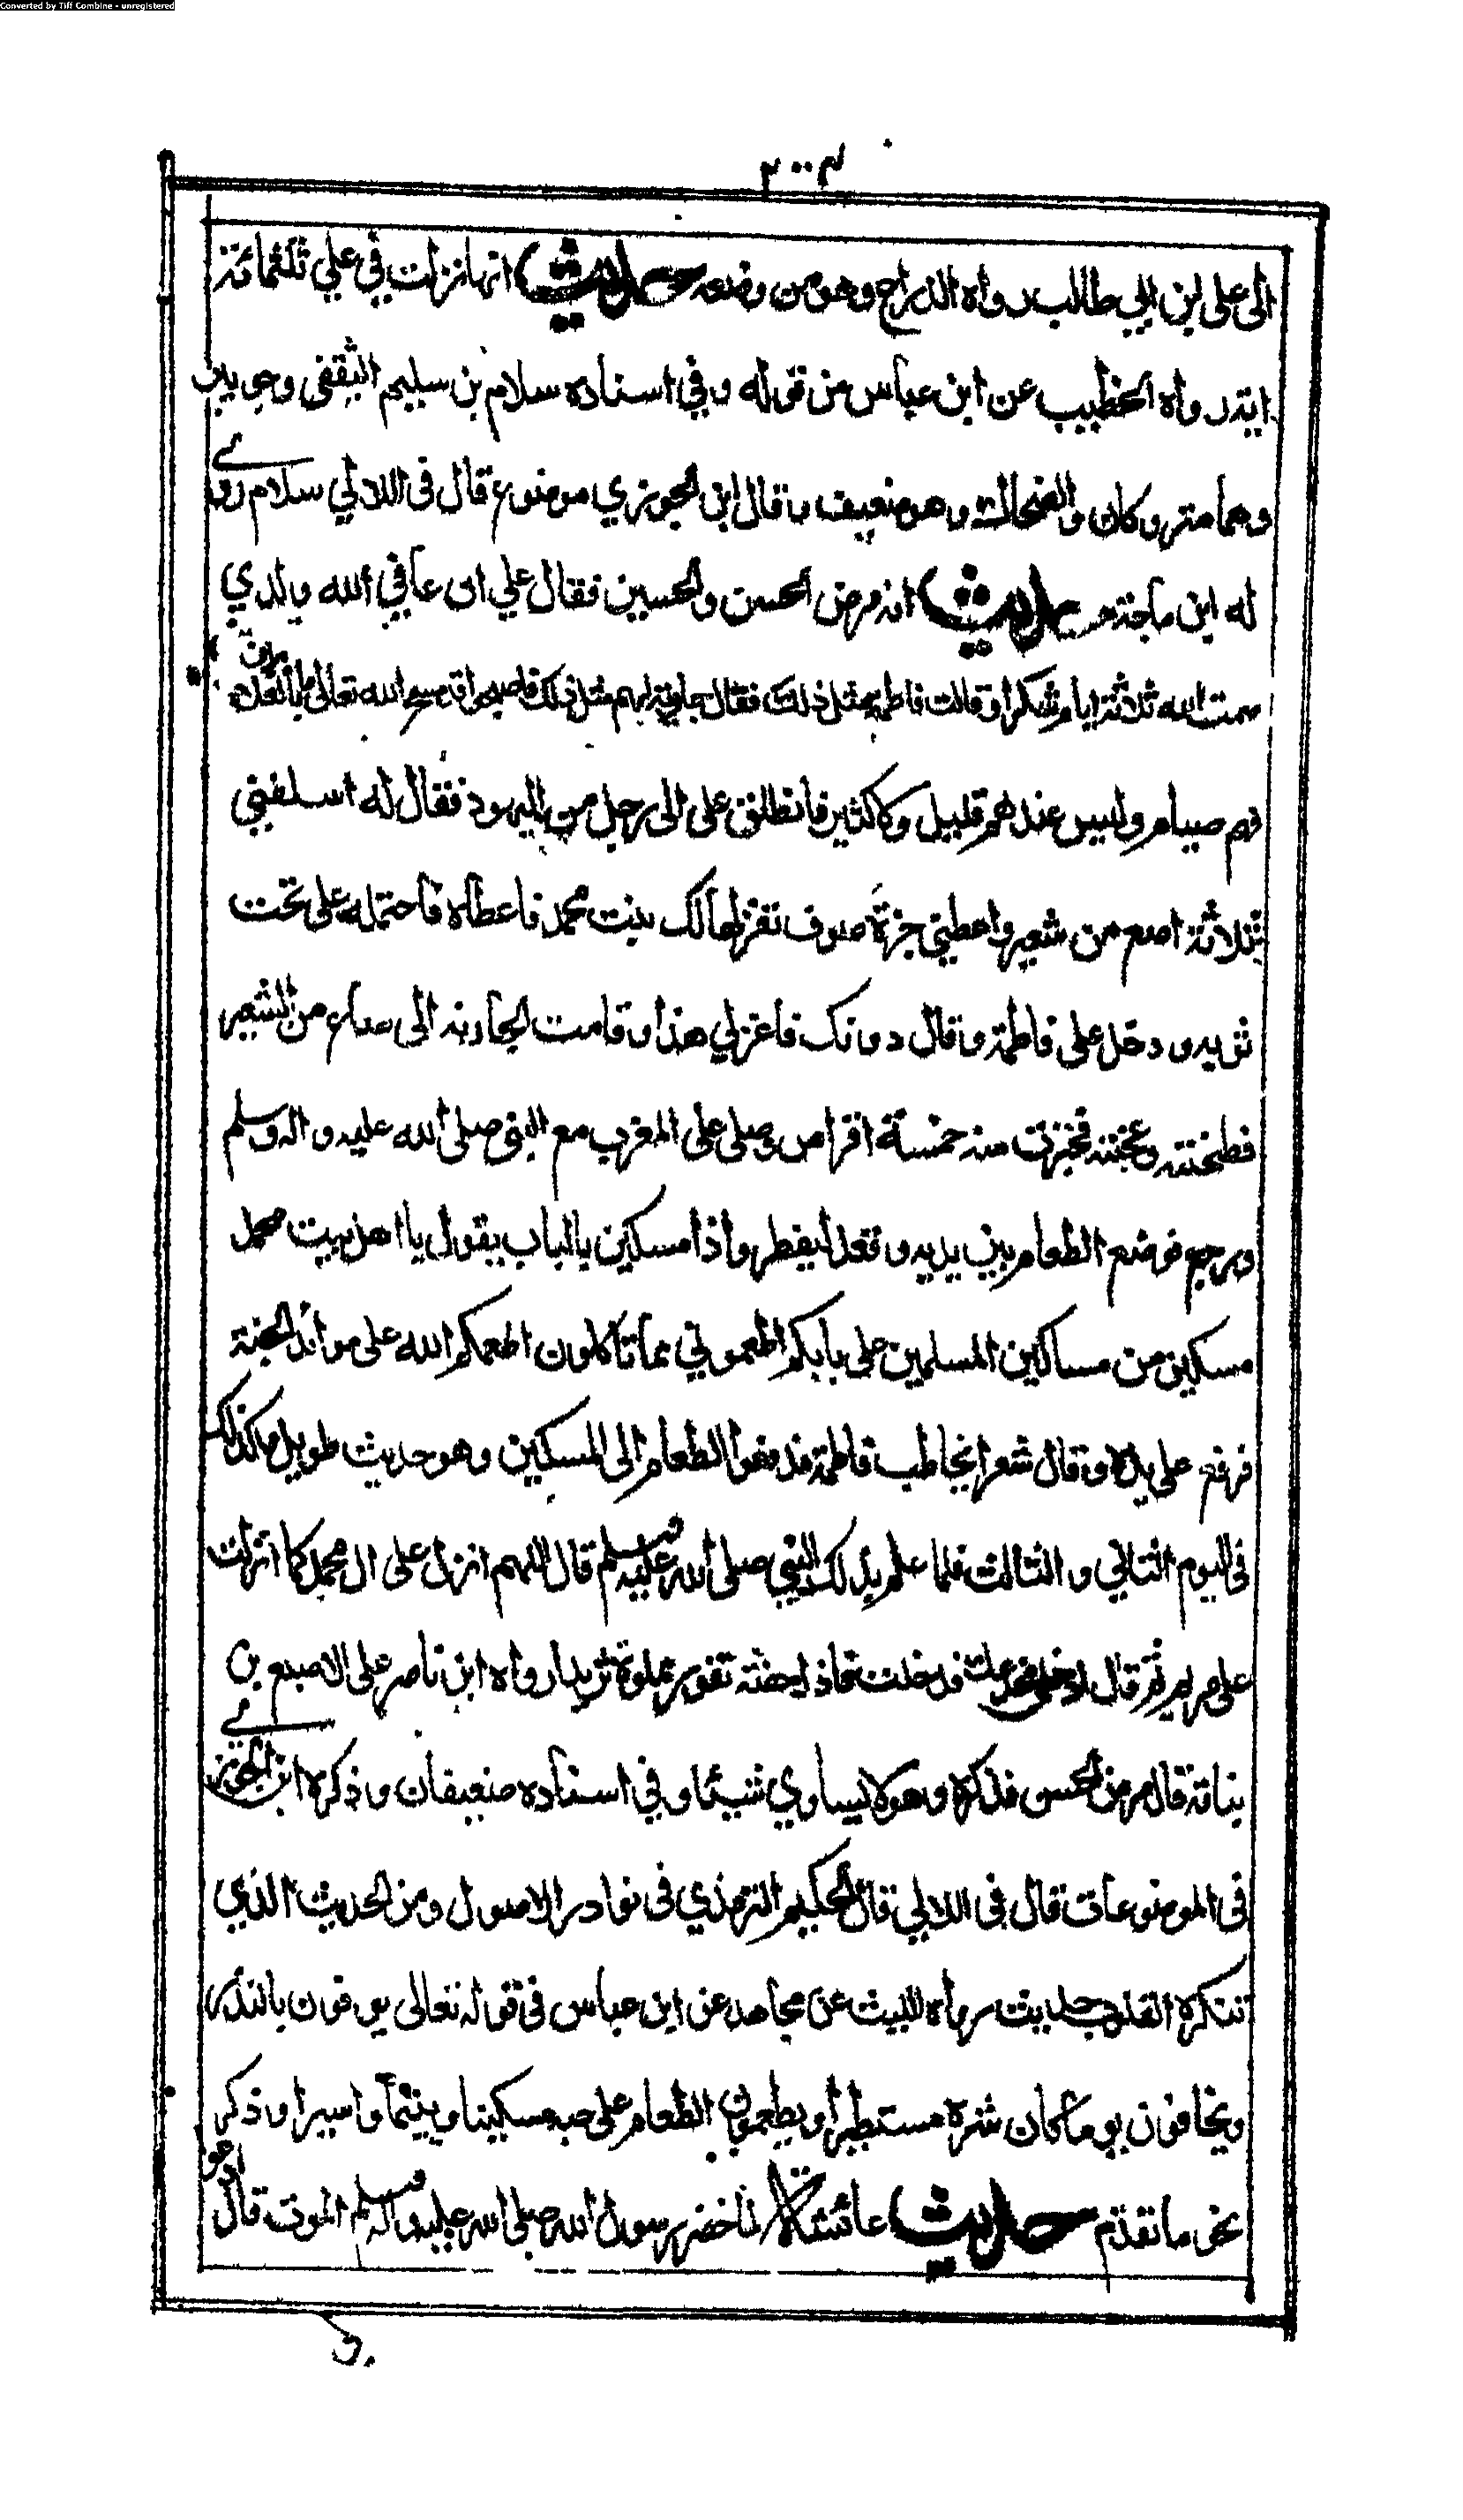 Converted by Tiff Combine - unregistered
الى على ابن ابي طالب رواه الذراع وهو من وضعه حديث انها نزلت في علي ثلثمائة
اية رواه الخطيب عن ابن عباس من قوله وفي اسناده سلام بن سليم الثقفى وجويبر
وهما متروكان والضحاك وهو ضعيف وقال ابن الجوزي موضوع قال فى اللالي سلام روى
له ابن ماجة حديث انه مرض الحسن والحسين فقال علي ان عافي الله ولدي
صمت لله ثلاثة ايام شكرا وقالت فاطمة مثل ذلك فقال جارية لهم مثل ذلك فاصبحوا قد مسح الله تعالى ما بالغلامين
فهم صيام وليس عندهم قليل ولا كثير فانطلق على الى رجل من اليهود فقال له اسلفني
ثلاثة اصع من شعير واعطني جزة صوف تغزلها لك بنت محمد فاعطاه فاحتمله على تحت
ثوبه ودخل على فاطمة وقال دونك فاغزلي هذا وقامت الجارية الى صاع من الشعير
فطحنته وعجنته فخبزت منه خمسة اقراص وصلى على المغرب مع النبي صلى الله عليه واله وسلم
ورجع فوضع الطعام بين يديه وقعد ليفطر واذا مسكين بالباب يقول يا اهل بيت محمد
مسكين من مساكين المسلمين على بابكم اطعموني مما تاكلون اطعمكم الله على موائد الجنة
فرفع على يده وقال شعرا يخاطب فاطمة فدفعوا الطعام الى المسكين وهو حديث طويل وكذلك
فى اليوم الثاني والثالث فلما علم بذلك النبي صلى الله عليه وسلم قال اللهم انزل على ال محمد كما انزلت
على مريم ثم قال فدخلت فاذا جفنة تفور مملوة ثريدا رواه ابن ناصر على الاصبغ بن
نباتة قال مرض الحسن فذكره وهو لا يساوي شيئا وفي اسناده ضعيفان وذكره ابن الجوزى
فى الموضوعات قال فى اللالي قال الحكيم الترمذي فى نوادر الاصول ومن الحديث الذي
تنكره القلوب حديث رواه الليث عن مجاهد عن ابن عباس فى قوله تعالى يوفون بالنذر
ويخافون يوما كان شره مستطيرا ويطعمون الطعام على حبه مسكينا ويتيما واسيرا وذكر
نحو ما تقدم حديث عائشة لما حضر رسول الله صلى الله عليه واله وسلم الموت قال ادعو